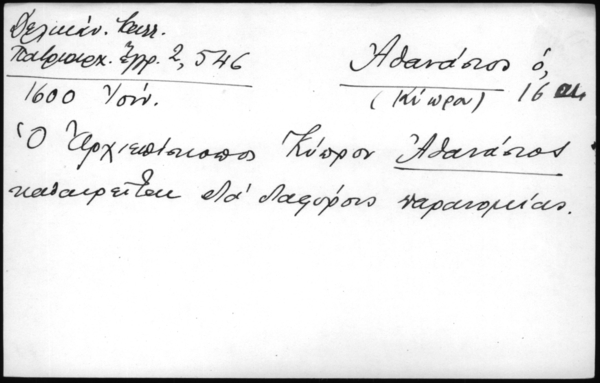 Δελικάν. Καλλ.
Πατριαρχ. Ἔγγρ. 2, 546
1600 Ἰούν.
Ἀθανάσιος ὁ,
(Κύπρου) 16 αι.
Ὁ Ἀρχιεπίσκοπος Κύπρου Ἀθανάσιος
καθαιρεῖται διά διαφόρους παρανομίας.